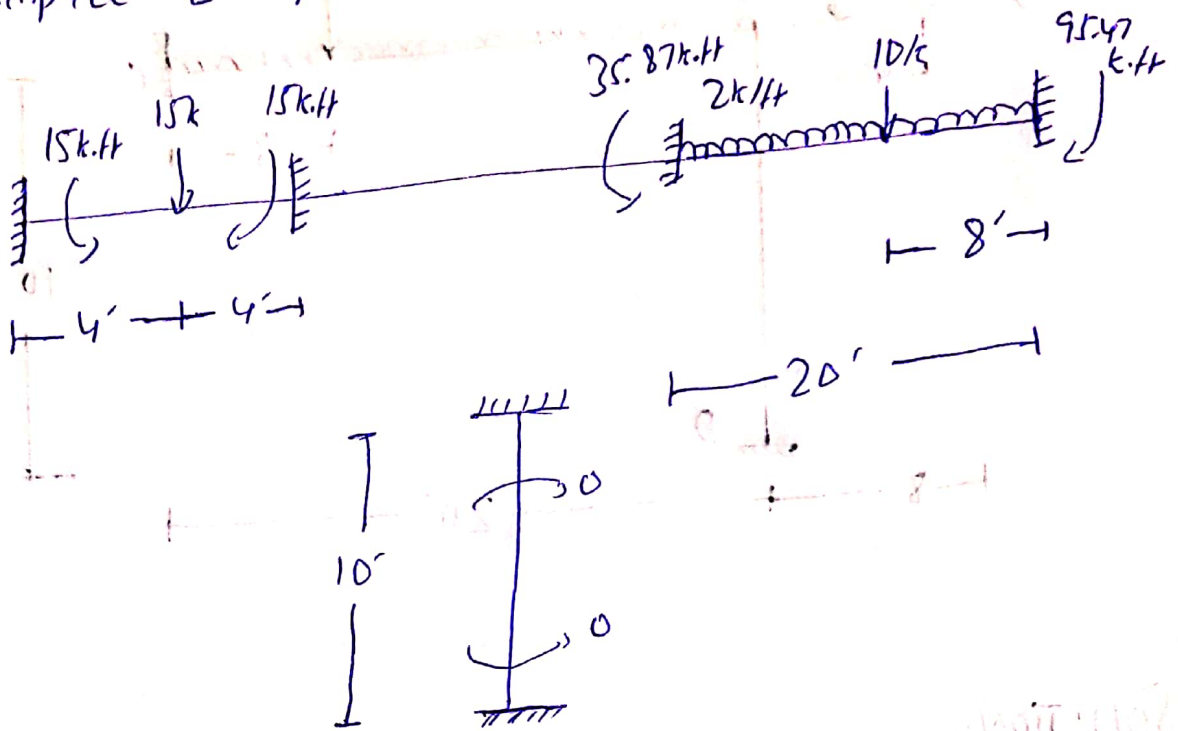 15k.ft 15k 15k.ft 35.87k.ft 2k/ft 10k 95.47 k.ft
4' 4' 8'
20'
0
10'
0